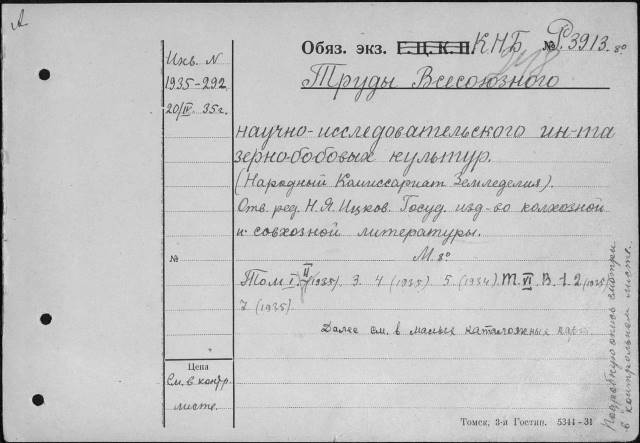 А
Обяз. экз. Г.Ц.К.П. К.Н.Б № Р3913. 8°.
Инв. N
1935-292
20/IV 35г.
Труды Всесоюзного
научно-исследовательского ин-та
зерно-бобовых культур.
(Народный Комиссариат Земледелия).
Отв. ред. Н.Я. Ицков. Госуд. изд-во колхозной
и совхозной литературы.
№
М. 8°
Том I. II (1935). 3. 4 (1935). 5 (1934). Т. VI В. 1. 2 (1935)
7 (1935).
Далее см. в малых каталожных
Цена
См. в контр.
листе.
Подробную опись смотри
в контрольном листе.
Томск, 3-я Гостип. 5344-31